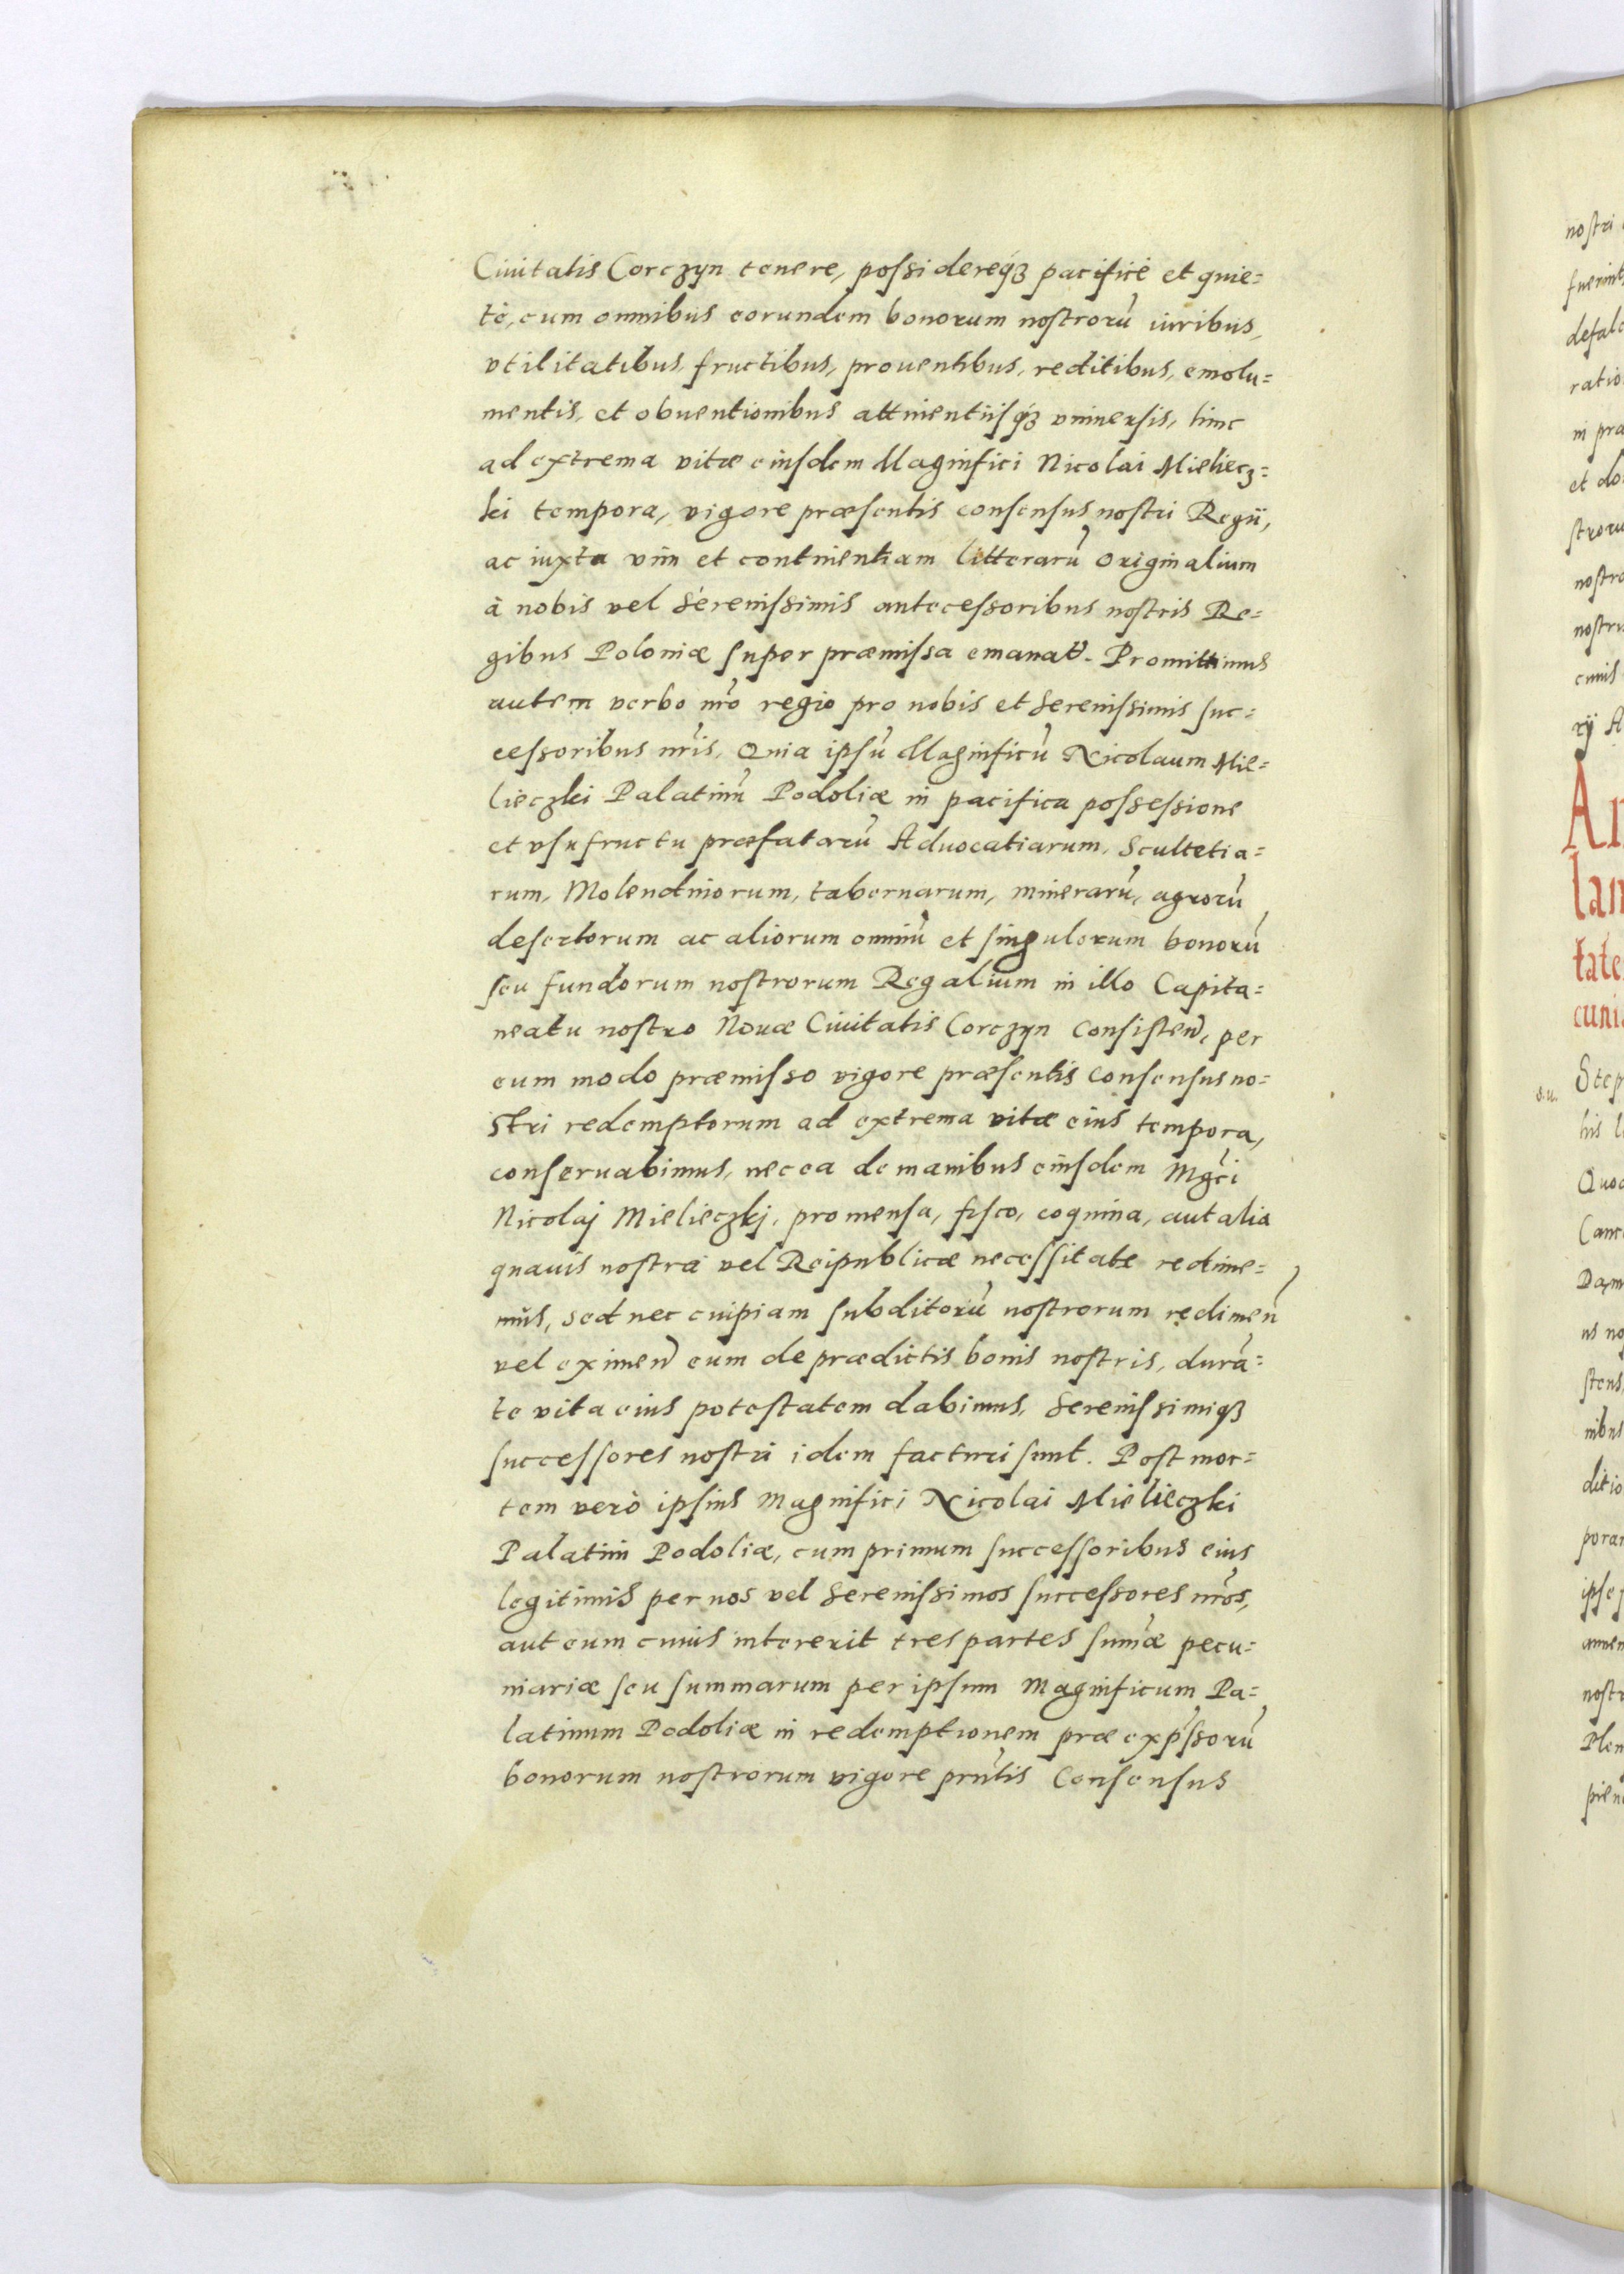 Ciuitatis Corczyn tenere, possidereq́ꝫ pacificè et quie=
tè, cum omnibus eorundem bonorum nostrorũ iuribus,
vtilitatibus, fructibus, prouentibus, reditibus, emolu=
mentis, et obuentionibus attinentiisq́ꝫ vniuersis, hinc
ad extrema vitæ eiusdem Magnifici Nicolai Mielecz=
ki tempora, vigore præsentis consensus nostri Regii,
ac iuxta vim et continentiam litterarũ originalium
à nobis vel Serenissimis antecessoribus nostris Re=
gibus Poloniæ super præmissa emanat̃. Promittimus
autem verbo nr̃o regio pro nobis et Serenissimis suc=
cessoribus nr̃is, Quia ipsũ Magnificũ Nicolaum Mie=
lieczki Palatinũ Podoliæ in pacifica possessione
et vsufructu præfatorũ Aduocatiarum, Scultetia=
rum, Molendinorum, tabernarum, minerarũ, agrorũ
desertorum ac aliorum omniũ et singulorum bonorũ
seu fundorum nostrorum Regalium in illo Capita=
neatu nostro Nouæ Ciuitatis Corczyn consisteñ, per
eum modo præmisso vigore præsentis consensus no=
stri redemptorum ad extrema vitæ eius tempora,
conseruabimus, nec ea de manibus eiusdem Mgc̃i
Nicolaj Mielieczkj, pro mensa, fisco, coquina, aut alia
quauis nostra vel Reipublicæ necessitate redime=
mus, sed nec cuipiam subditorũ nostrorum redimeñ
vel eximeñ eum de prædictis bonis nostris, durã=
te vita eius potestatem dabimus, Serenissimiqꝫ
successores nostri idem facturi sunt. Post mor=
tem verò ipsius Magnifici Nicolai Mielieczki
Palatini Podoliæ, cum primum successoribus eius
legitimis per nos vel Serenissimos successores nr̃os,
aut eum cuius intererit tres partes sum̃æ pecu=
niariæ seu summarum per ipsum Magnificum Pa=
latinum Podoliæ in redemptionem præexp̃ssorũ
bonorum nostrorum vigore prñtis Consensus